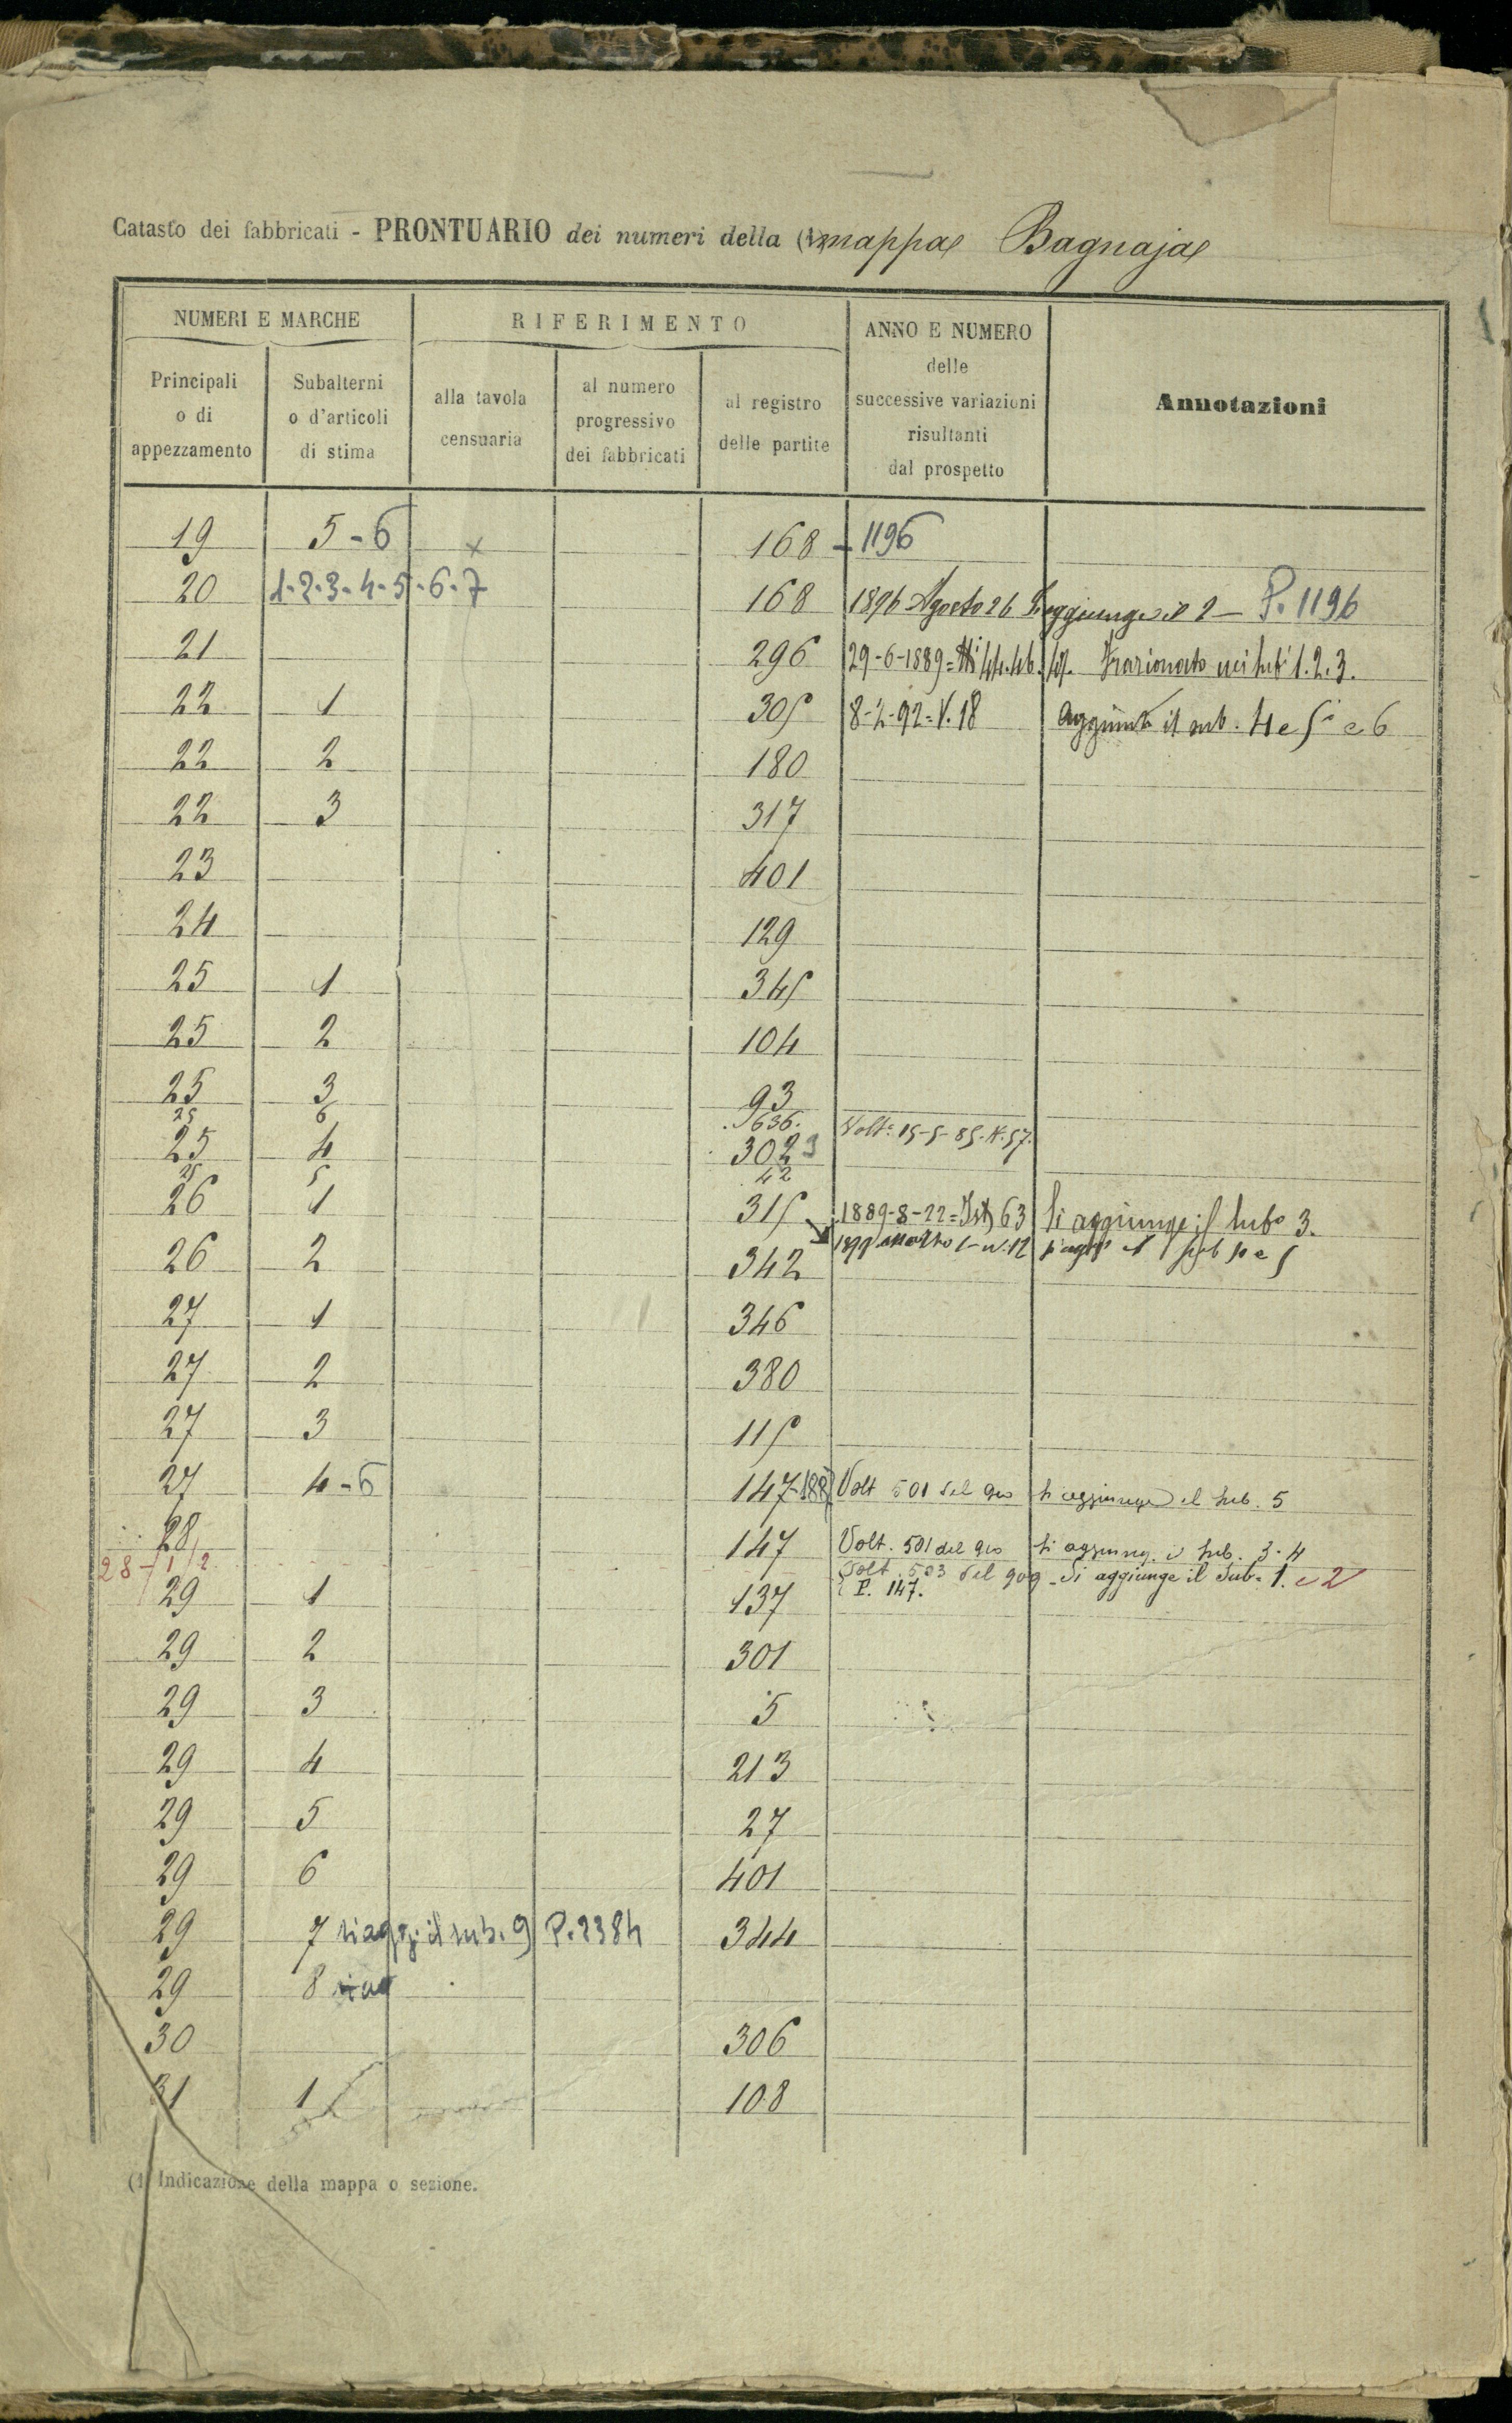 Catasto dei fabbricati - PRONTUARIO dei numeri della (1) mappa Bagnaja
NUMERI E MARCHE
RIFERIMENTO
ANNO E NUMERO
delle
successive variazioni
risultanti
dal prospetto
Annotazioni
Principali
o di
appezzamento
Subalterni
o d'articoli
di stima
alla tavola
censuaria
al numero
progressivo
dei fabbricati
al registro
delle partite
19 5-6 x 168 - 1196
20 1-2-3-4-5-6-7 168 1896 Agosto 26 Si aggiunge il 2 - P. 1196
21 296 29-6-1889 = 44.46.47. Frazionato nei sub i 1.2.3.
22 1 305 8-2-92 = V. 18 Aggiunto il sub. 4 e 5 e 6
22 2 180
22 3 317
23 401
24 129
25 1 345
25 2 104
25 3 93
25 6 636. Volt. 15-5-85. N. 57.
25 4 3023
25 5 42
26 1 315 1889-8-22 = 63 Si aggiunge il subo 3.
26 2 342
27 1 346
27 2 380
27 3 115
27 4-6 147-188 Volt 501 del 910 si aggiunge il sub. 5
28 147 Volt. 501 del 910 si aggiung. i sub. 3-4
28-1/2 Volt. 503 del 909 - Si aggiunge il Sub. 1. e 2
P. 147.
29 1 137
29 2 301
29 3 5
29 4 213
29 5 27
29 6 401
29 7 si agg: il sub. 9 P. 2384 344
29 8
30 306
31 1 108
(1) Indicazione della mappa o sezione.